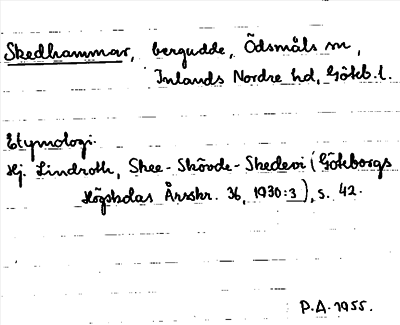 Skedhammar, bergudde, Ödsmåls sn,
Inlands Nordre hd, Gökb. l.
Etymologi.
Hj. Lindroth, Skee-Skövde-Skedevi (Göteborgs
Högskolas Årsskr. 36, 1930:3), s. 42.
P.A. 1955.